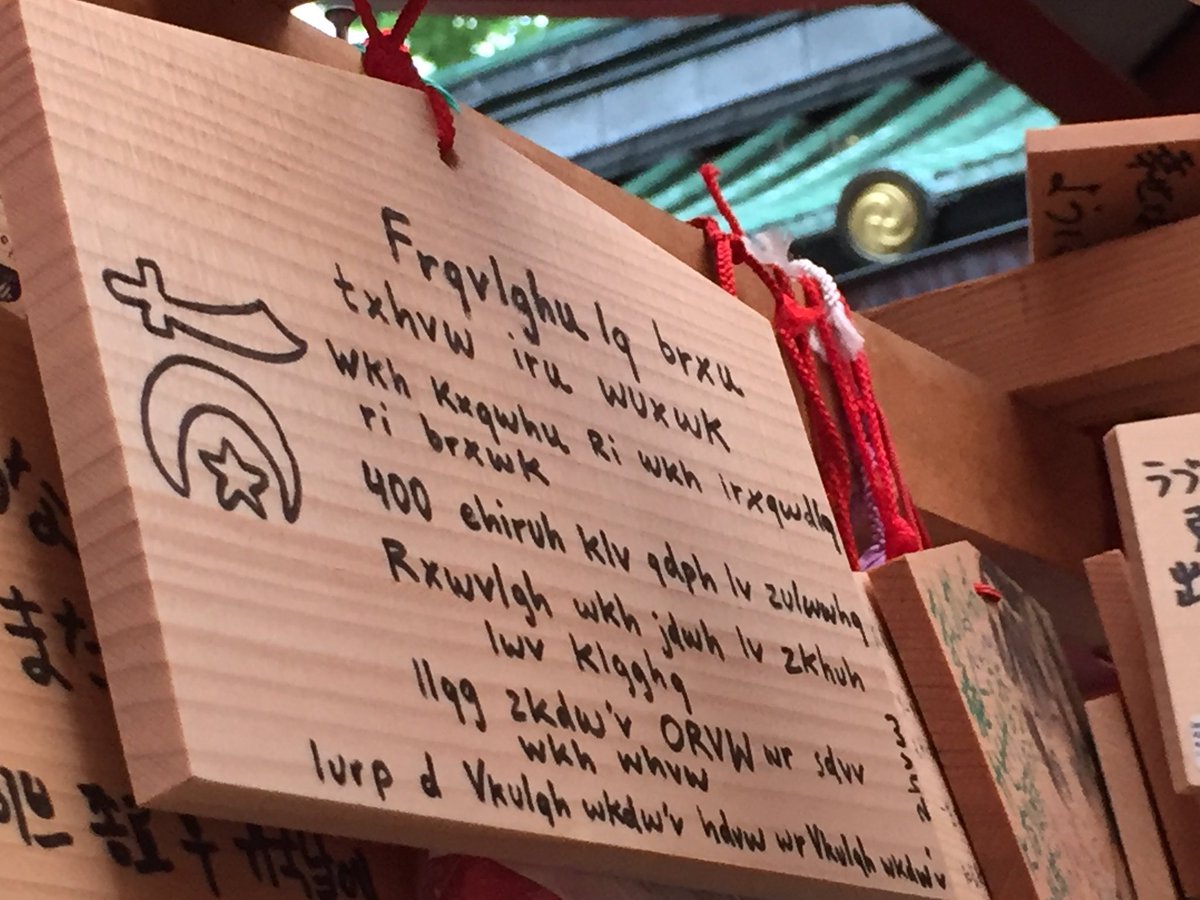 Frqvlghu lq brxu
txhvw iru wuxwk
wkh Kxqwhu Ri wkh irxqwdlq
ri brxwk
400 ehiruh klv qdph lv zulwwhq
Rxwvlgh wkh jdwh lv zkhuh
lwv klgghq
Ilqg zkdw'v ORVW wr sdvv
wkh whvw
Iurp d Vkulqh wkdw'v hdvw wr Vkulqh wkdw'v
zhvw